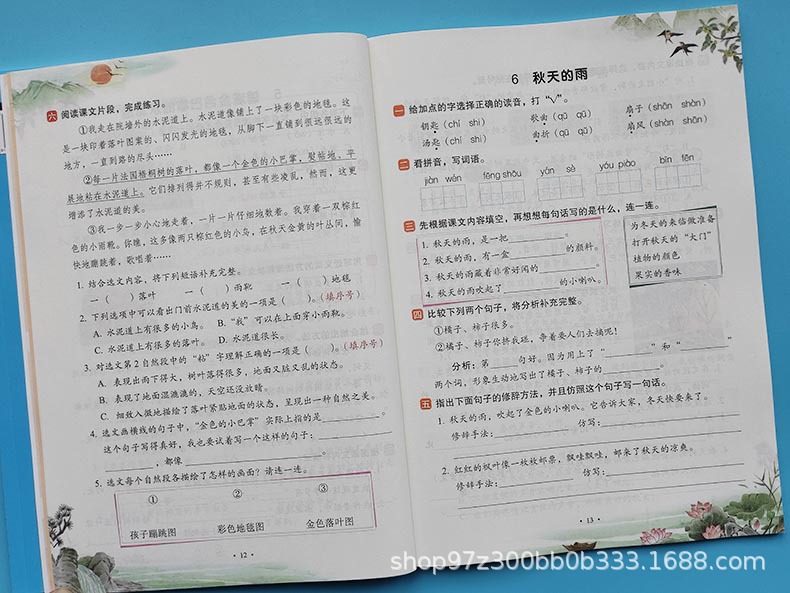 六 阅读课文片段，完成练习。
①我走在院墙外的水泥道上。水泥道像铺上了一块彩色的地毯。这
是一块印着落叶图案的、闪闪发光的地毯，从脚下一直铺到很远很远的
地方，一直到路的尽头……
②每一片法国梧桐树的落叶，都像一个金色的小巴掌，熨帖地、平
展地粘在水泥道上。它们排列得并不规则，甚至有些凌乱，然而，这更
增添了水泥道的美。
③我一步一步小心地走着，一片一片仔细地数着。我穿着一双棕红
色的小雨靴。你瞧，这多像两只棕红色的小鸟，在秋天金黄的叶丛间，愉
快地蹦跳着，歌唱着……
1. 结合选文内容，将下列短语补充完整。
一（ ）落叶 一（ ）雨靴 一（ ）地毯
2. 下列选项中可以看出门前水泥道的美的一项是（ ）。（填序号）
A. 水泥道上有很多的小鸟。 B. “我”可以在上面穿小雨靴。
C. 水泥道上有很多的落叶。 D. 水泥道很长。
3. 对选文第2自然段中的“粘”字理解正确的一项是（ ）。（填序号）
A. 表现出雨下得大，树叶落得很多，地面又脏又乱的状态。
B. 表现了地面湿漉漉的，天空还没放晴。
C. 细致入微地描绘了落叶紧贴地面的状态，呈现出一种自然之美。
4. 选文画横线的句子中，“金色的小巴掌”实际上指的是________。
这个句子写得真好，我也要试着写一个这样的句子：________
________，都像________。
5. 选文每个自然段各描绘了怎样的画面？请连一连。
① ② ③
孩子蹦跳图 彩色地毯图 金色落叶图
· 12 ·
6 秋天的雨
一 给加点的字选择正确的读音，打“√”。
钥匙（chí shi） 歌曲（qū qǔ） 扇子（shān shàn）
汤匙（chí shi） 曲折（qū qǔ） 扇风（shān shàn）
二 看拼音，写词语。
jiàn wén fēng shōu yán sè yóu piào bīn fēn
三 先根据课文内容填空，再想想每句话写的是什么，连一连。
1. 秋天的雨，是一把________。
2. 秋天的雨，有一盒________的颜料。
3. 秋天的雨藏着非常好闻的________。
4. 秋天的雨吹起了________的小喇叭。
为冬天的来临做准备
打开秋天的“大门”
植物的颜色
果实的香味
四 比较下列两个句子，将分析补充完整。
①橘子、柿子很多。
②橘子、柿子你挤我碰，争着要人们去摘呢！
分析：第____句好。因为用上了“________”和“________”
两个词，形象生动地写出了橘子、柿子的________。
五 指出下面句子的修辞方法，并且仿照这个句子写一句话。
1. 秋天的雨，吹起了金色的小喇叭。它告诉大家，冬天快要来了。
修辞手法：________ 仿写：________
2. 红红的枫叶像一枚枚邮票，飘哇飘哇，邮来了秋天的凉爽。
修辞手法：________ 仿写：________
· 13 ·
shop97z300bb0b333.1688.com